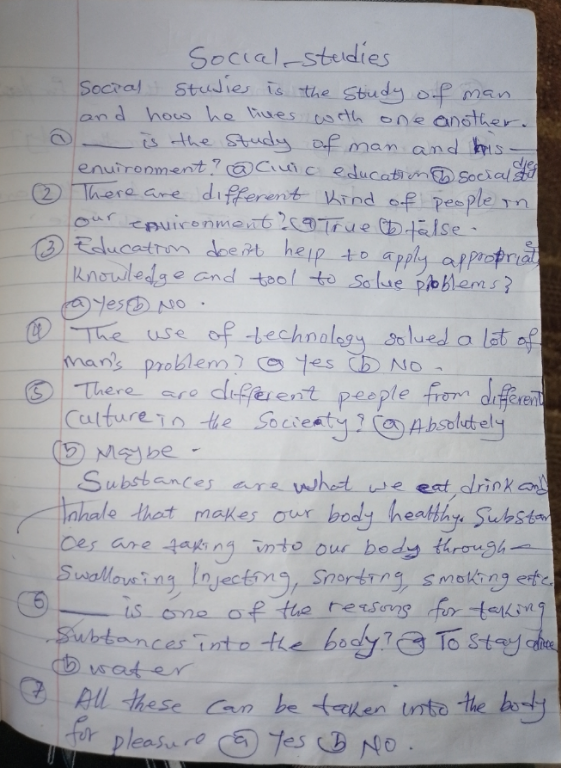 Social-studies
Social Studies is the study of man
and how he lives with one another.
① ___ is the study of man and his
environment? ⓐ Civic education ⓑ social studies
② There are different kind of people in
our environment? ⓐ True ⓑ false.
③ Education doesn't help to apply appropriate
Knowledge and tool to solve problems?
ⓐ Yes ⓑ NO.
④ The use of technology solved a lot of
man's problem? ⓐ Yes ⓑ NO.
⑤ There are different people from different
Culture in the Socieaty? ⓐ Absolutely
ⓑ Maybe -
Substances are what we eat, drink and
Inhale that makes our body healthy. Substan
ces are taking into our body through
Swallowing, Injecting, Snorting, smoking etc.
⑥ ___ is one of the reasons for taking
Subtances into the body? ⓐ To Stay alive
ⓑ water
⑦ All these can be taken into the body
for pleasure ⓐ Yes ⓑ NO.